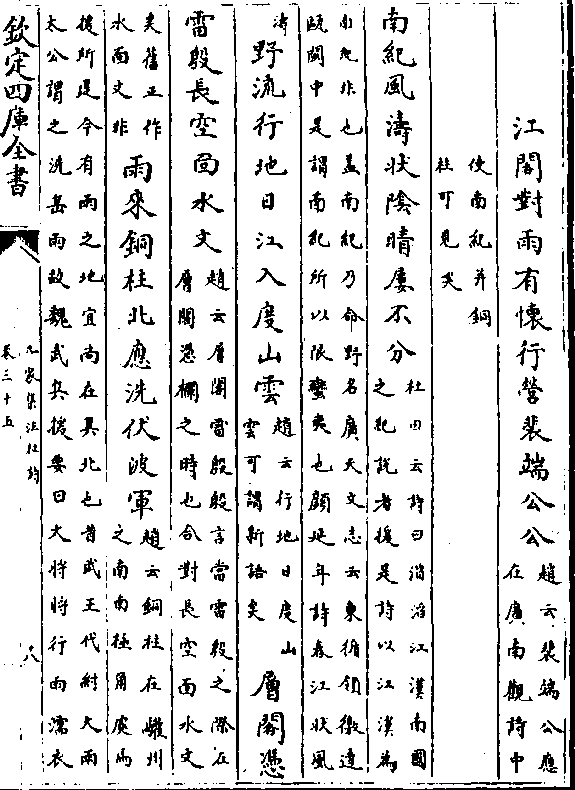 江閣對雨有懷行營裴端公公趙云裴端公應在廣南觀詩中
使南紀并銅柱可見矣
南紀風濤壯陰晴屢不分杜田云詩曰滔滔江漢南國之紀說者援是詩以江漢為
南紀非也蓋南紀乃分野名廣天文志云東循領徼達甌閩中是謂南紀所以限蠻夷也顔延年詩春江壯風
濤野流行地日江入度山雲趙云行地日度山雲可謂新語矣層閣憑
雷殷長空面水文趙云層閣雷殷殷言當雷殷之際在層閣憑欄之時也合對長空面水文
矣舊正作水面文非雨來銅柱北應洗伏波軍趙云銅柱在驩州之南南極角處馬
援所建今有雨之地宜尚在其北也昔武王伐紂大雨太公謂之洗兵雨故魏武兵援要曰大將將行雨濡衣
欽定四庫全書
九家集注杜詩
卷三十五
八